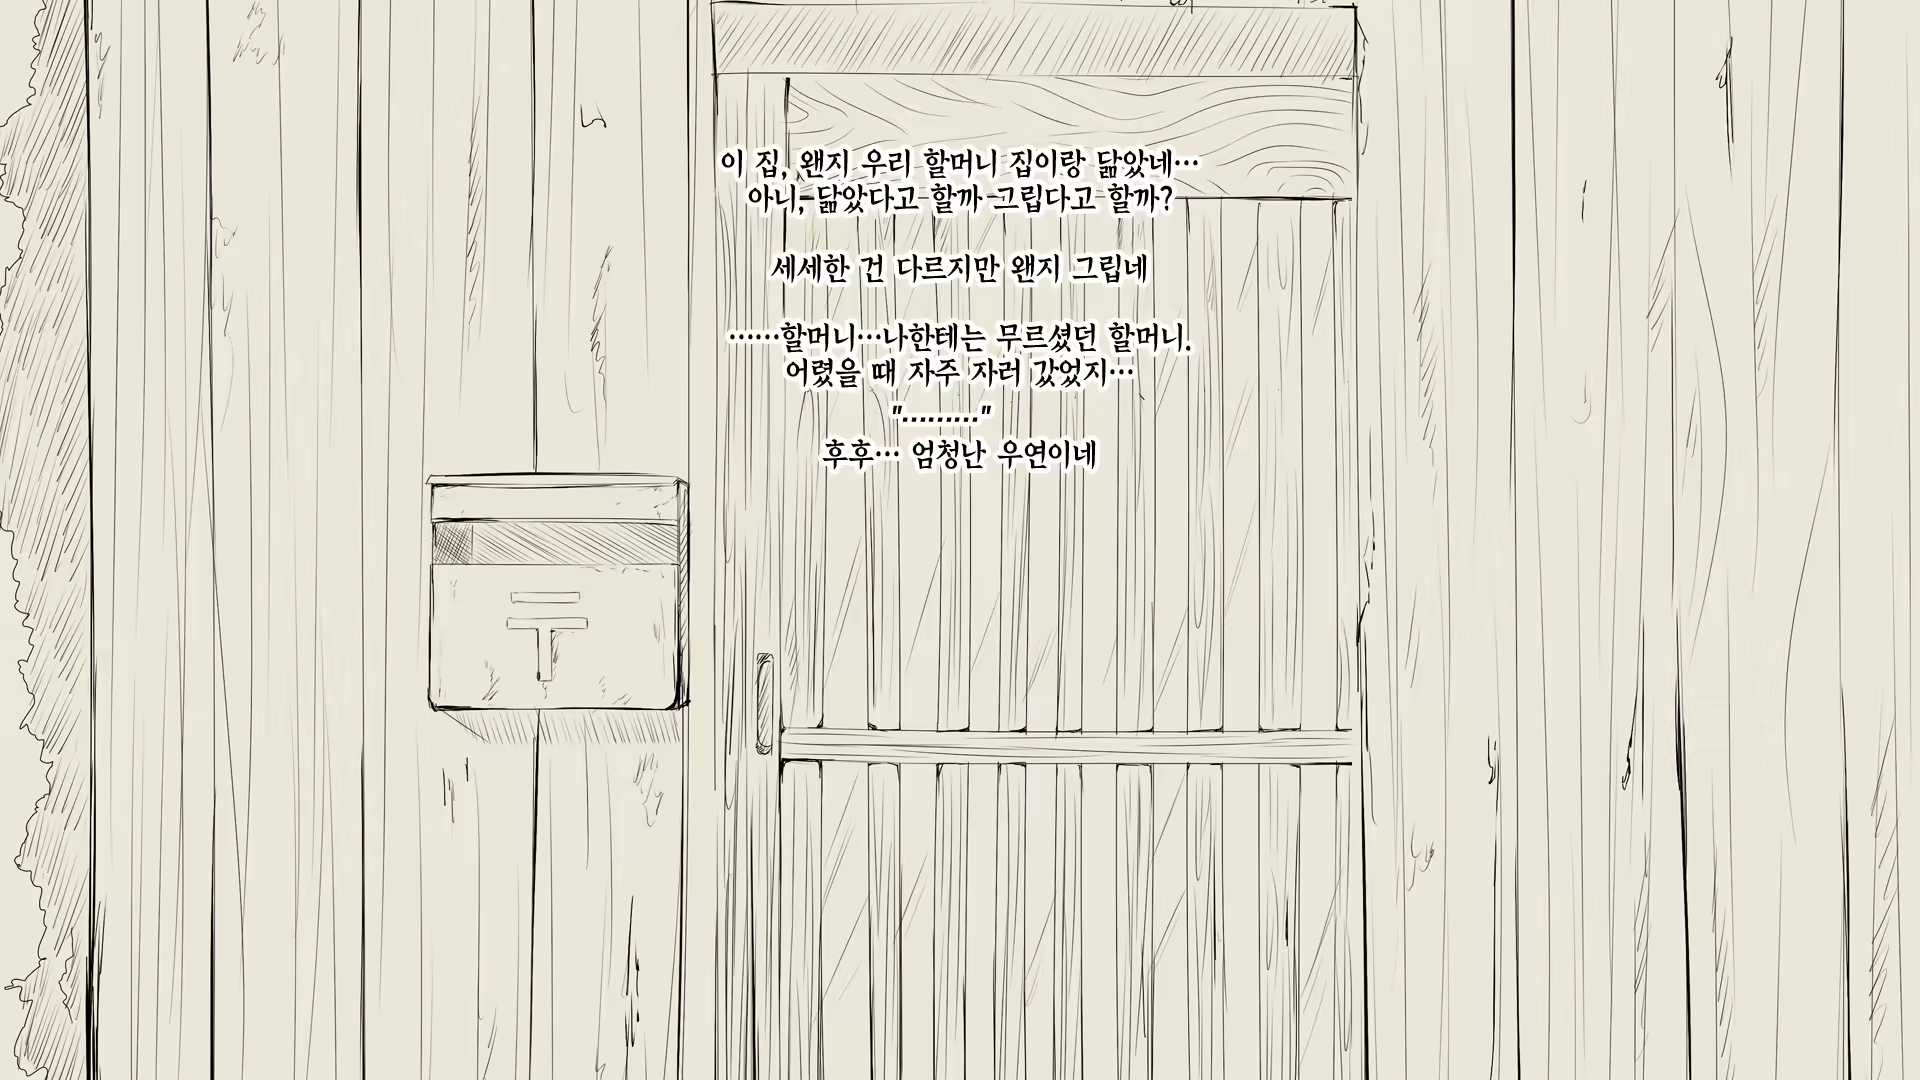 이 집, 왠지 우리 할머니 집이랑 닮았네…
아니, 닮았다고 할까 그립다고 할까?
세세한 건 다르지만 왠지 그립네
……할머니…나한테는 무르셨던 할머니.
어렸을 때 자주 자러 갔었지…
"………"
후후… 엄청난 우연이네
〒